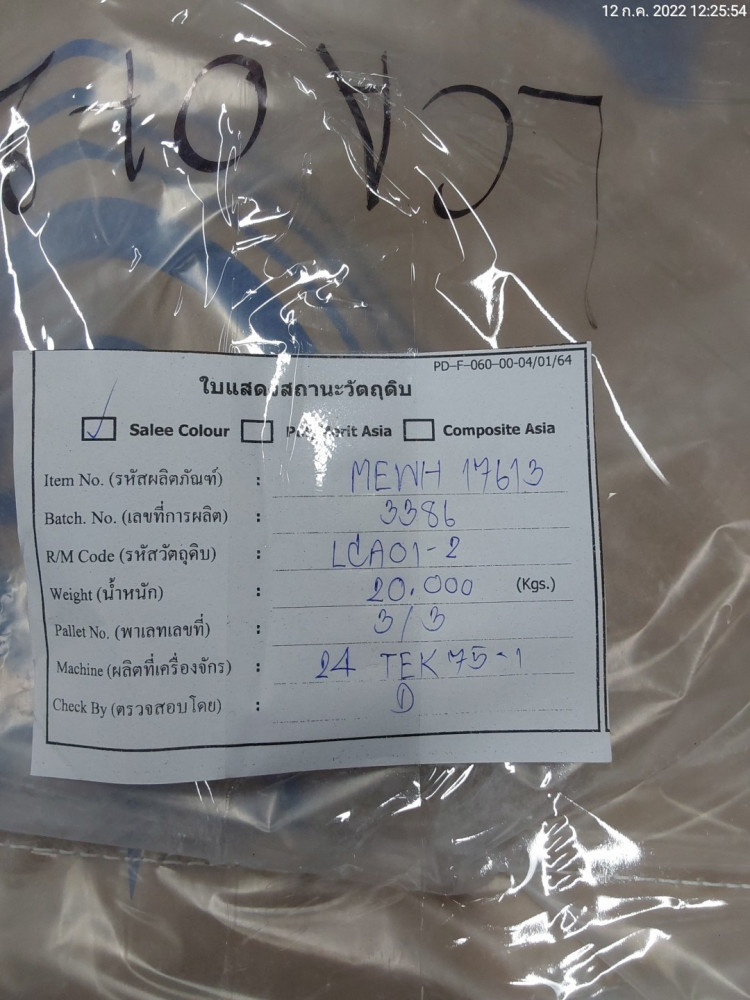 12 ก.ค. 2022 12:25:54
LCA01-2
PD-F-060-00-04/01/64
ใบแสดงสถานะวัตถุดิบ
Salee Colour Asia Composite Asia
Item No. (รหัสผลิตภัณฑ์) : MEWH 17613
Batch. No. (เลขที่การผลิต) : 3386
R/M Code (รหัสวัตถุดิบ) : LCA01-2
Weight (น้ำหนัก) : 20.000 (Kgs.)
Pallet No. (พาเลทเลขที่) : 3/3
Machine (ผลิตที่เครื่องจักร) : 24 TEK 75-1
Check By (ตรวจสอบโดย) :